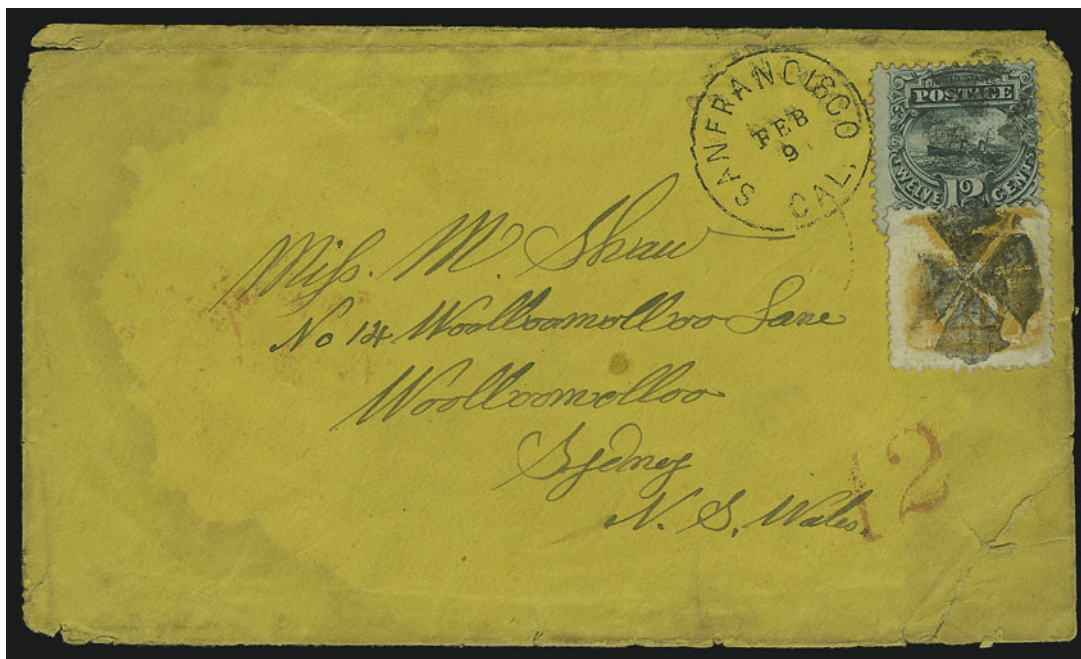 SAN FRANCISCO
FEB
9
CAL.
POSTAGE
TWELVE 12 CENTS
Miss. M. Shaw
No 14 Woolloomolloo Lane
Woolloomolloo
Sydney
N. S. Wales.
12